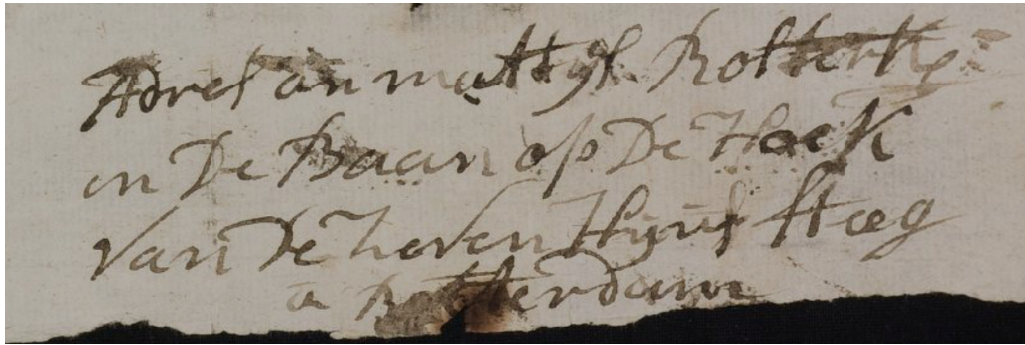 Adres an mattijs Robberts
in De Baan op De Hoek
van De Zeven Huijs steeg
a Rotterdam